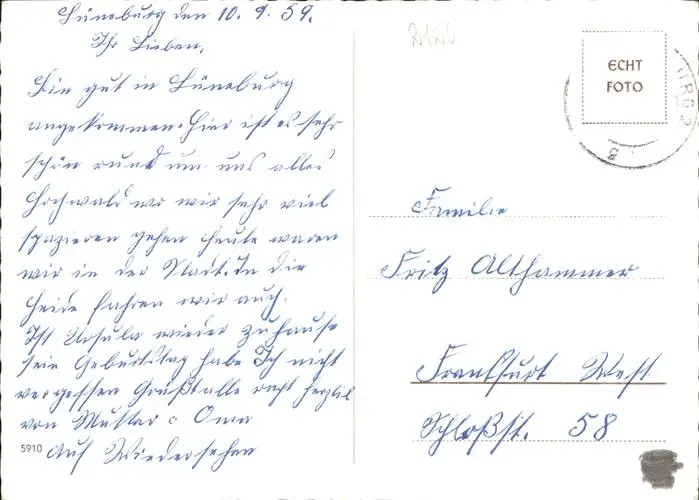 Lüneburg den 10.9.59.
Ihr Lieben.
Bin gut in Lüneburg
angekommen. Hier ist es sehr
schön rund um uns alles
Hochwald wo wir sehr viel
spazieren gehen heute waren
wir in der Stadt. In die
Heide fahren wir auch.
Ist Ursula wieder zuhause
sein Geburtstag habe Ich nicht
vergessen Grüßt alle recht herzlich
von Mutter & Oma
Auf Wiedersehen
5910
ECHT
FOTO
Familie
Fritz Althammer
Frankfurt West
Schloßst. 58